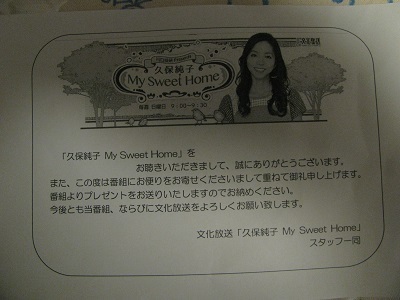 久保純子
My Sweet Home
毎週 日曜日 9:00~9:30
「久保純子 My Sweet Home」を
お聴きいただきまして、誠にありがとうございます。
また、この度は番組にお便りをお寄せくださいまして重ねて御礼申し上げます。
番組よりプレゼントをお送りいたしますのでお納めください。
今後とも当番組、ならびに文化放送をよろしくお願い致します。
文化放送「久保純子 My Sweet Home」
スタッフ一同